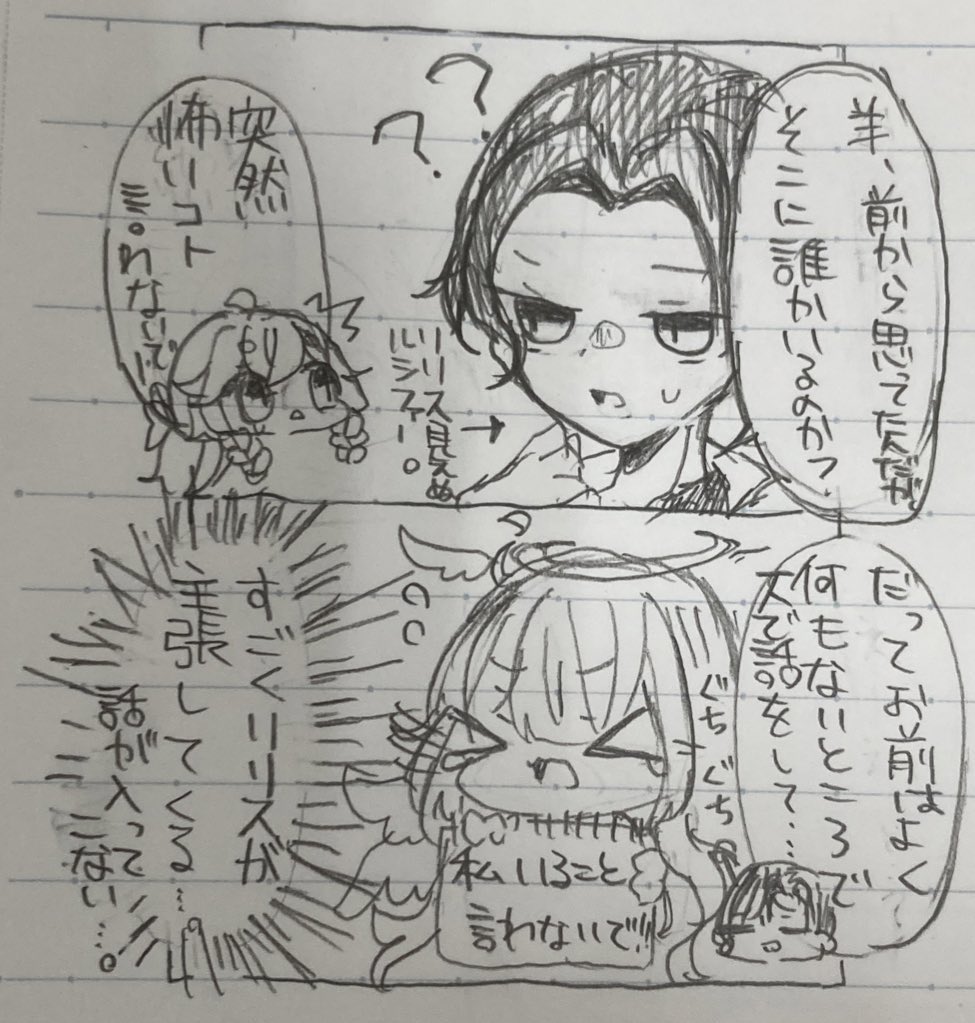 羊、前から思ってたんだが
そこに誰かいるのか?
??
リリス見えぬ
ルシファー。
突然
怖いコト
言わないで
だってお前はよく
何もないところで
大で話をして…
ぐちぐち
私いること
言わないで!!
すごくリリスが
主張してくる…。
話が入って
こない…。